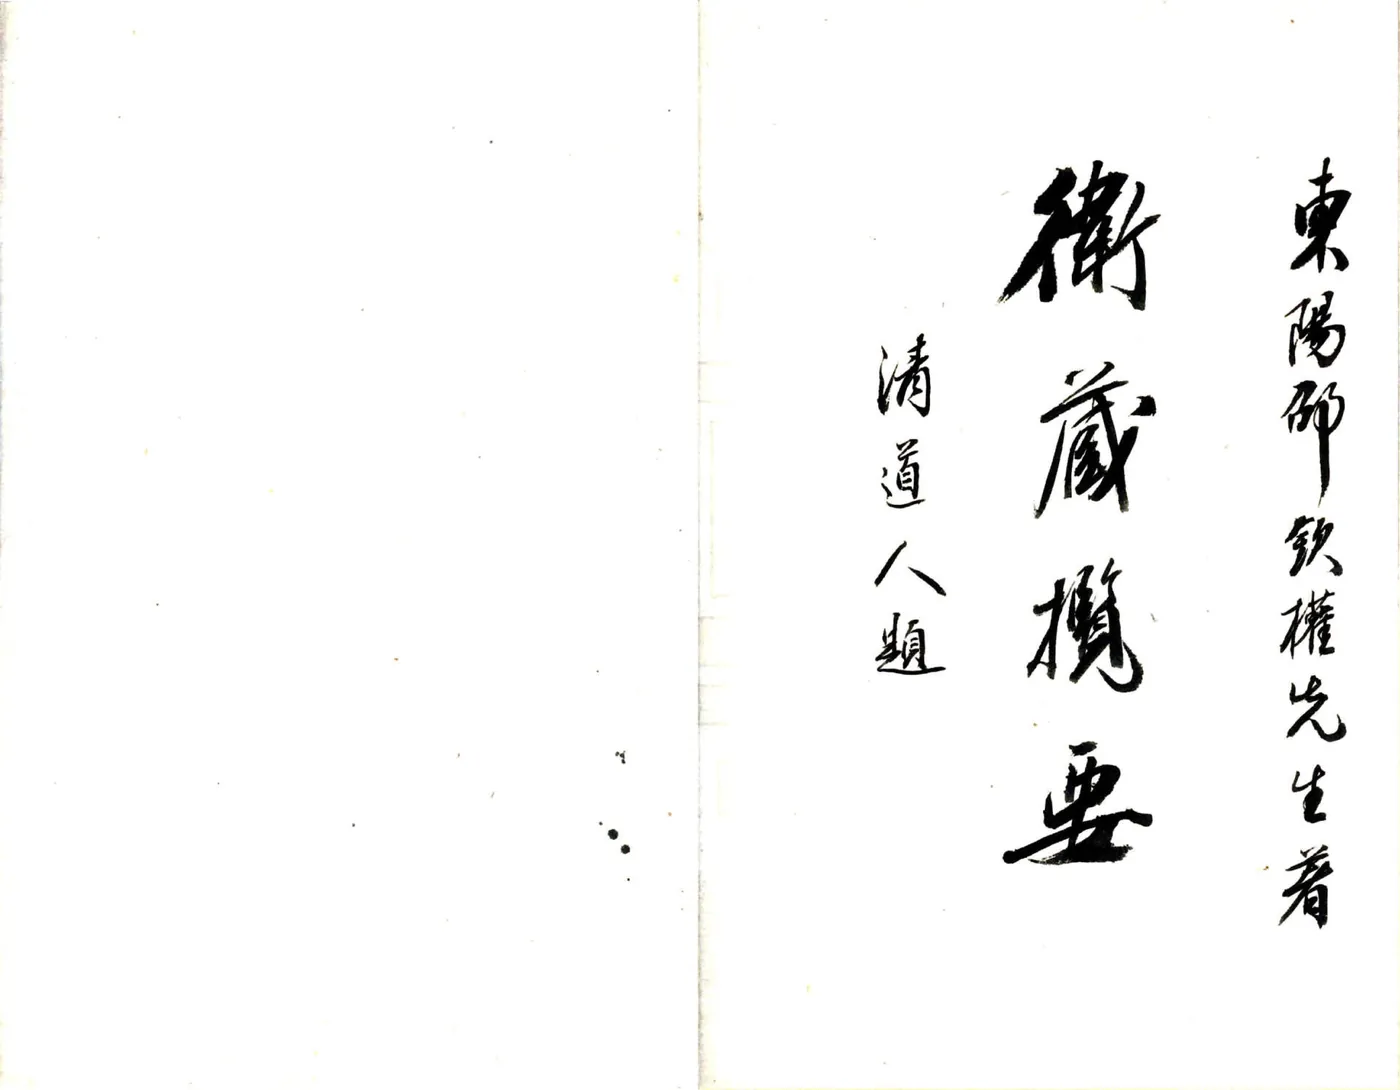 東陽邵欽權先生著
衛藏攬要
清道人題